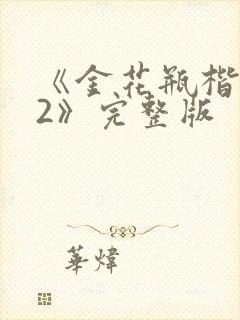 《金花瓶楷
2》完整版
華煒